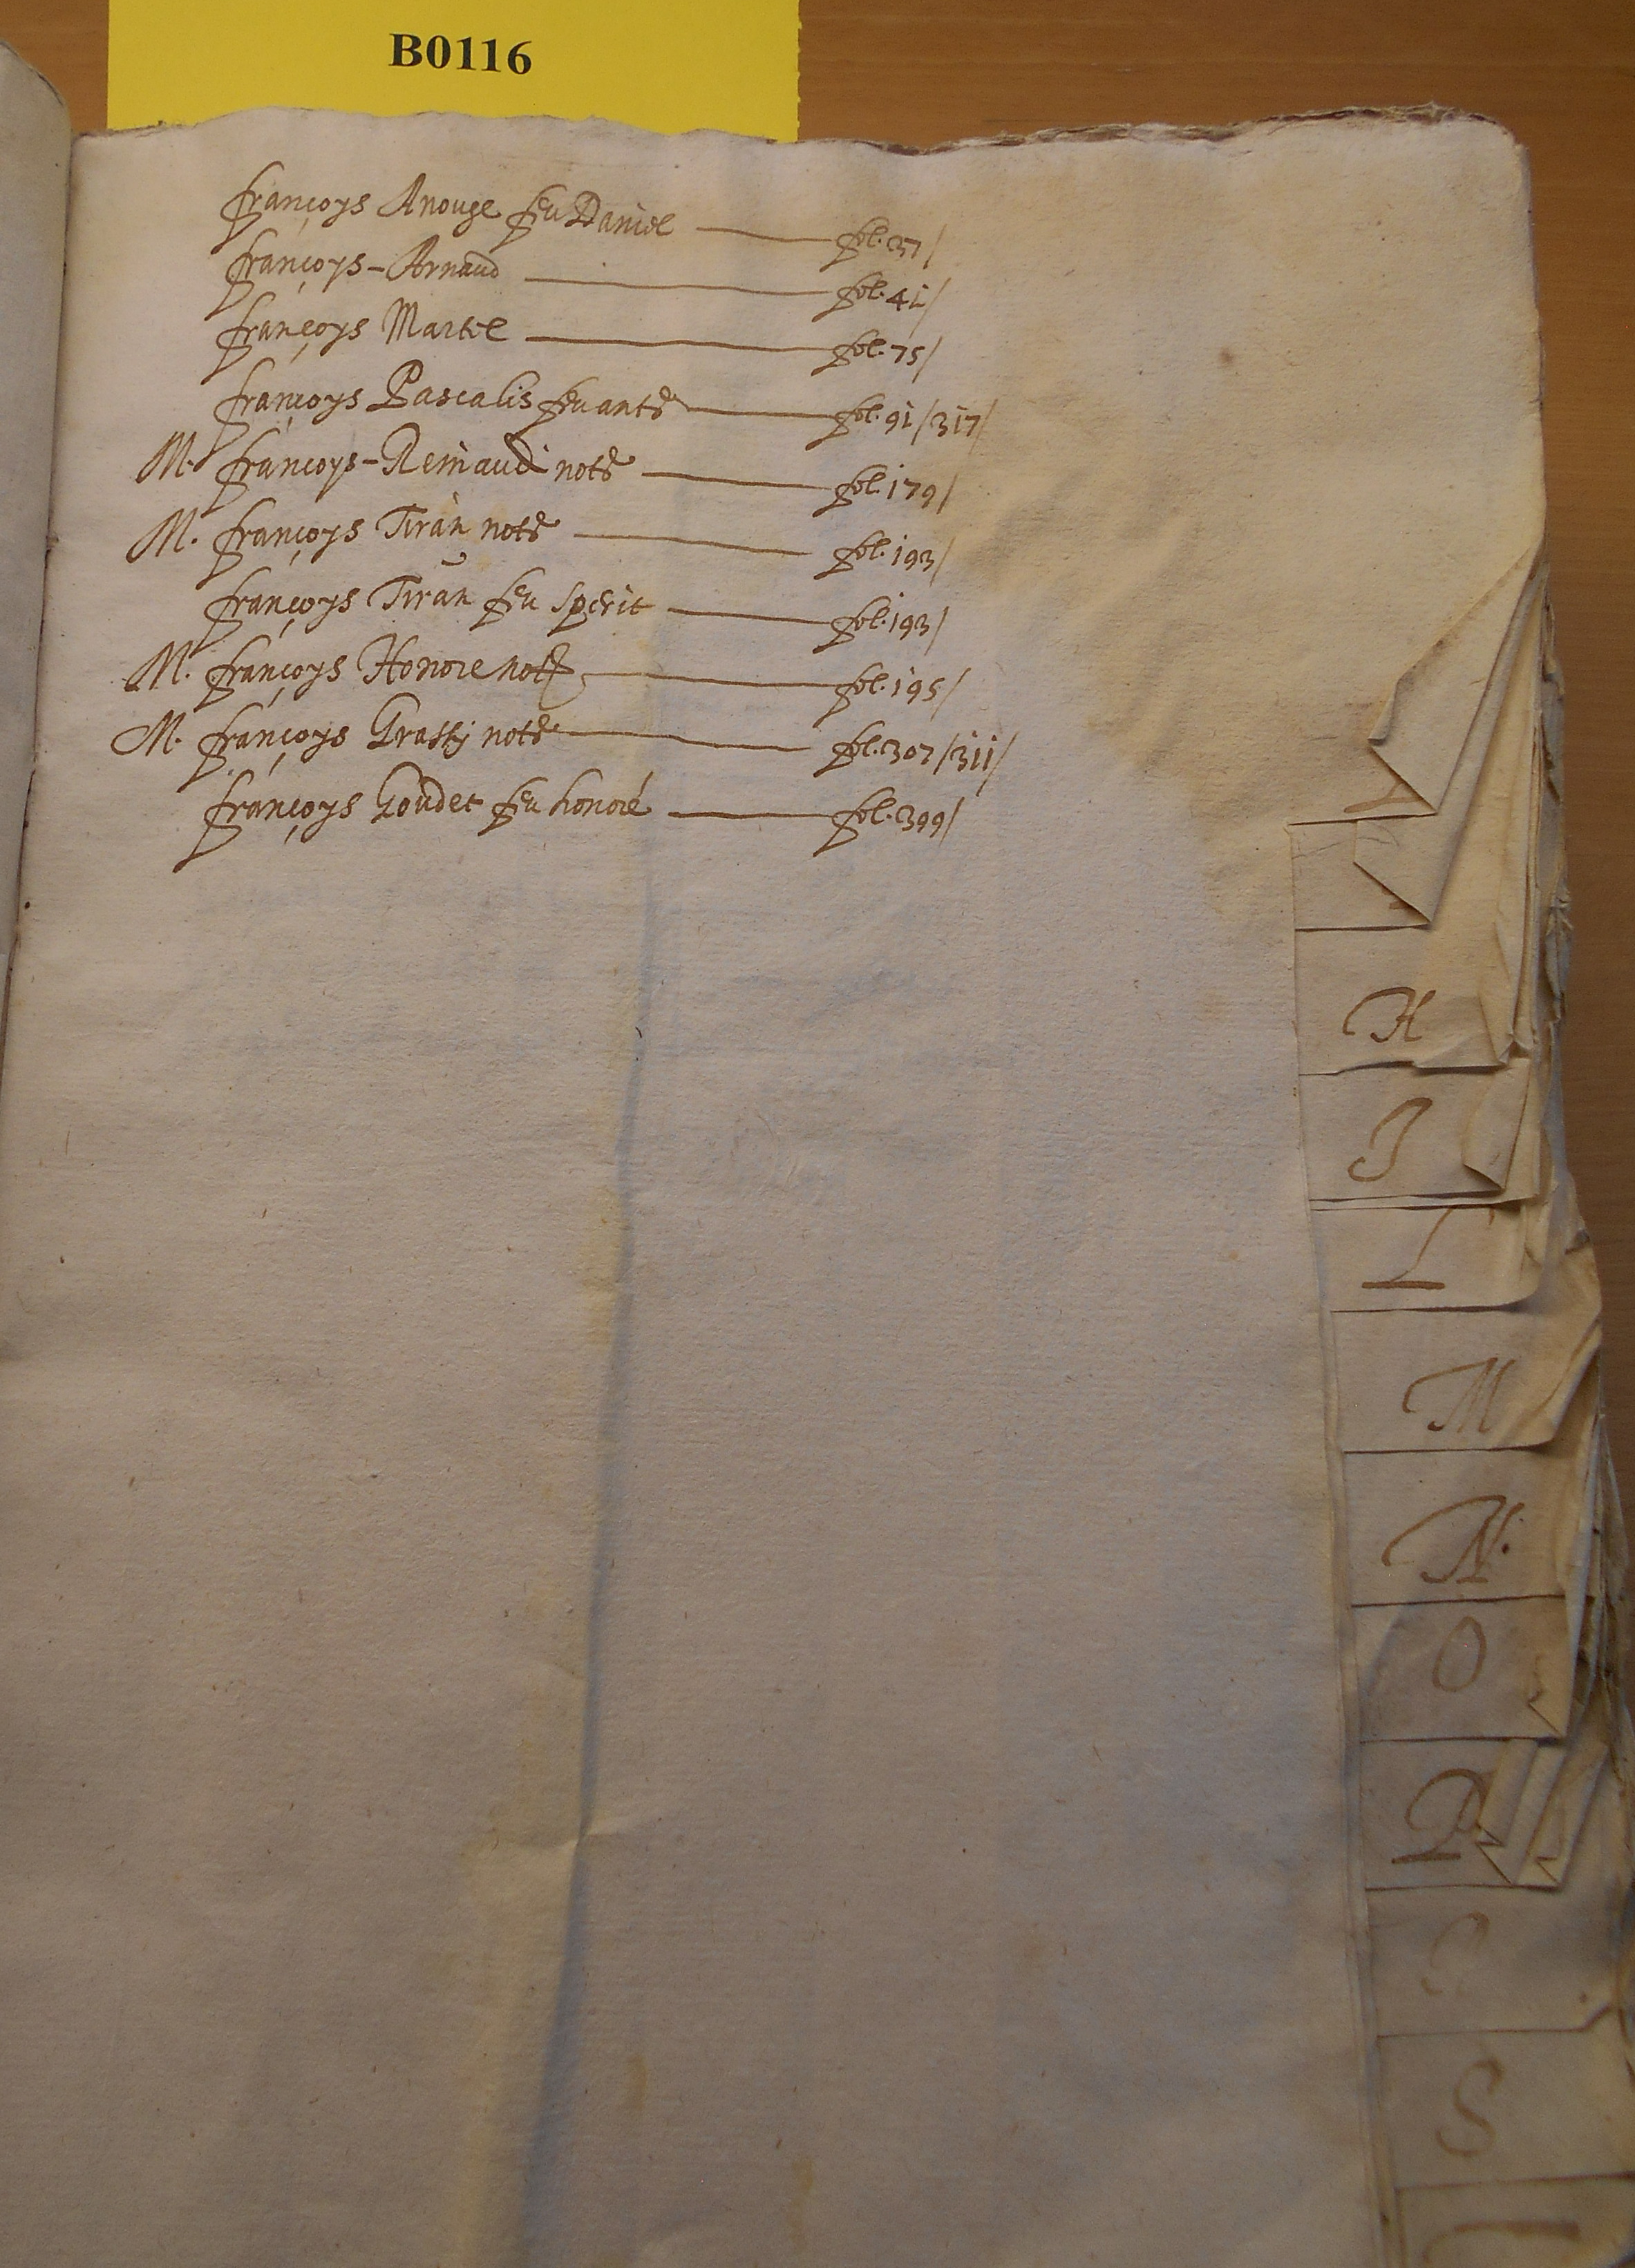 B0116
françoys Anouge feu Daniel fol. 37/
françoys - Arnaud fol. 41/
françoys Martel fol. 75/
françoys Pascalis feu fol. 91/317/
M. françoys - Reinaud fol. 179/
M. françoys Tiran fol. 193/
françoys Tiran feu sperit fol. 193/
M. françoys Honore fol. 195/
M. françoys Grassy fol. 307/311/
françoys Goudet feu honoré fol. 399/
H
I
L
M
N.
O
P
S